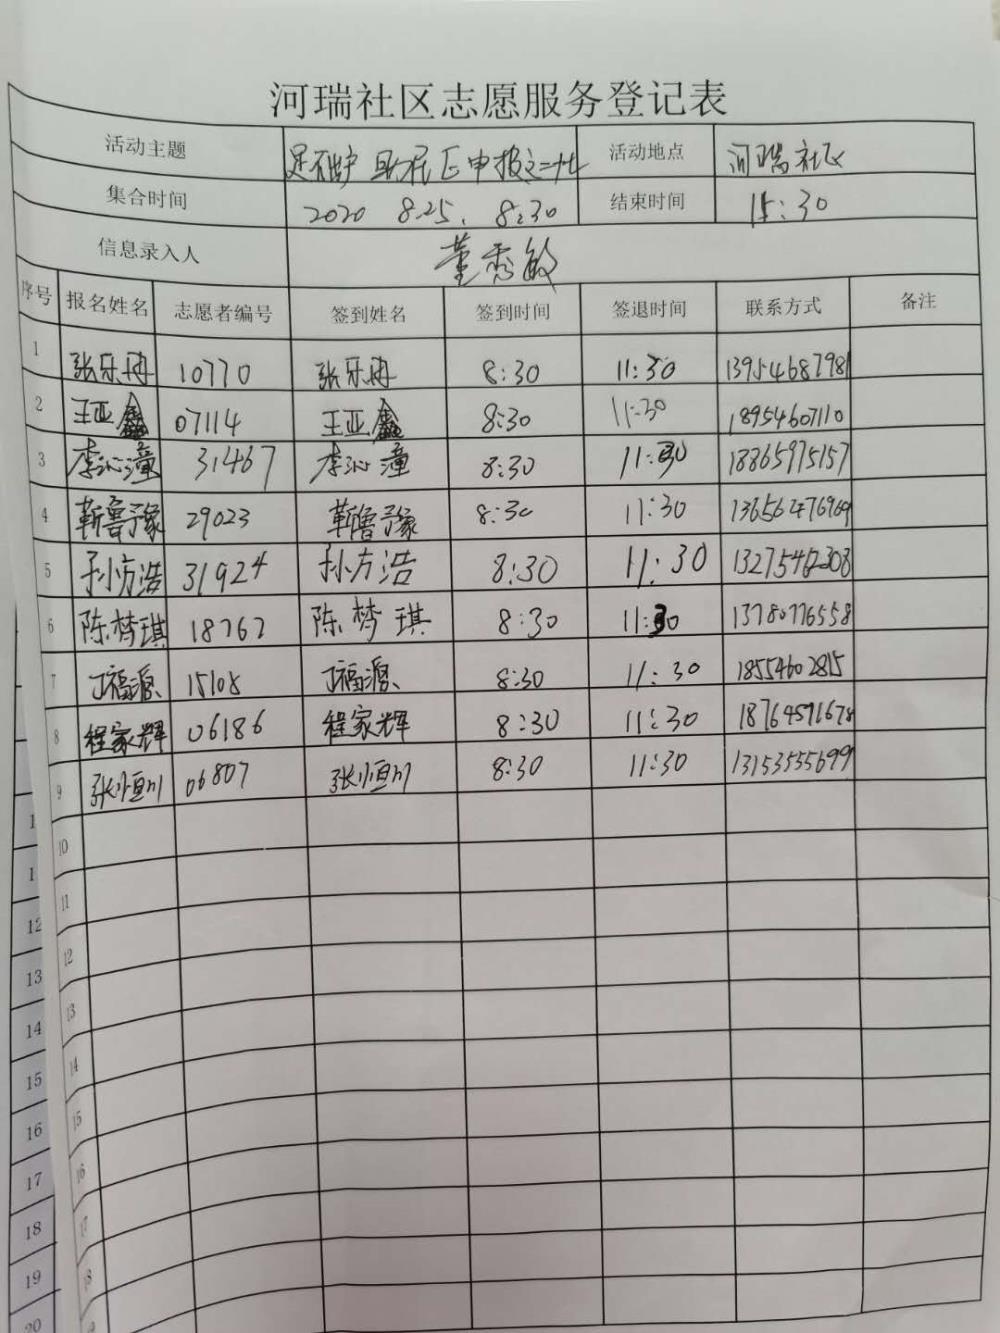 河瑞社区志愿服务登记表
活动主题 申报 活动地点 河瑞社区
集合时间 2020 8.25. 8:30 结束时间 15:30
信息录入人 董秀敏
序号 报名姓名 志愿者编号 签到姓名 签到时间 签退时间 联系方式 备注
1 张乐冉 10770 张乐冉 8:30 11:30 13954687981
2 王亚鑫 07114 王亚鑫 8:30 11:30 18954607110
3 李沁潼 31467 李沁潼 8:30 11:30 18865975157
4 靳鲁豫 29023 靳鲁豫 8:30 11:30
5 孙方浩 31924 孙方浩 8:30 11:30
6 陈梦琪 18762 陈梦琪 8:30 11:30 13780776558
7 丁福源 15108 丁福源 8:30 11:30 18554602815
8 程家辉 06186 程家辉 8:30 11:30 18764591678
9 张恒川 06807 张恒川 8:30 11:30 13153555699
10
11
12
13
14
15
16
17
18
12
13
14
15
16
17
18
19
20